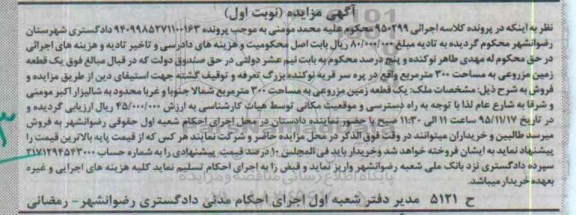 آگهی مزایده (نوبت اول)
نظر به اینکه در پرونده کلاسه اجرائی ۹۵۰۲۹۹ محکوم علیه محمد مومنی به موجب پرونده ۹۴۰۹۹۸۵۲۷۱۱۰۰۱۶۳ دادگستری شهرستان
رضوانشهر محکوم گردیده به تادیه مبلغ ۸۰/۰۰۰/۰۰۰ ریال بابت اصل محکومیت و هزینه های دادرسی و تاخیر تادیه و هزینه های اجرائی
در حق محکوم له مهدی طاهر نوکنده و پنج درصد محکوم به بابت نیم عشر دولتی در حق صندوق دولت که در قبال مبالغ فوق یک قطعه
زمین مزروعی به مساحت ۳۰۰ مترمربع واقع در پره سر قریه نوکنده بزرگ تعرفه و توقیف گشته جهت استیفای دین از طریق مزایده و
فروش به شرح ذیل: مشخصات ملک: یک قطعه زمین مزروعی به مساحت ۳۰۰ مترمربع شمالا جنوبا و غربا محدود به شالیزار اکبر مومنی
و شرقا به شارع عام لذا با توجه به راه دسترسی و موقعیت مکانی توسط هیات کارشناسی به ارزش ۴۵/۰۰۰/۰۰۰ ریال ارزیابی گردیده و
در تاریخ ۹۵/۱۱/۱۷ ساعت ۱۱ الی ۱۱:۳۰ صبح با حضور نماینده دادستان در محل اجرای احکام شعبه اول حقوقی رضوانشهر به فروش
میرسد طالبین و خریداران میتوانند در وقت فوق الذکر در محل مزایده حاضر و شرکت نمایند هر کس که از قیمت پایه بالاترین قیمت را
پیشنهاد نماید به ایشان فروخته خواهد شد و خریدار باید فی المجلس ۱۰ درصد قیمت پیشنهادی را به شماره حساب ۲۱۷۱۲۹۴۵۴۳۰۰۰
سپرده دادگستری نزد بانک ملی شعبه رضوانشهر واریز نماید و فیش را به اجرای احکام تسلیم نماید کلیه هزینه های اجرایی و غیره
بعهده خریدار میباشد.
ح ۵۱۲۱ مدیر دفتر شعبه اول اجرای احکام مدنی دادگستری رضوانشهر - رمضانی